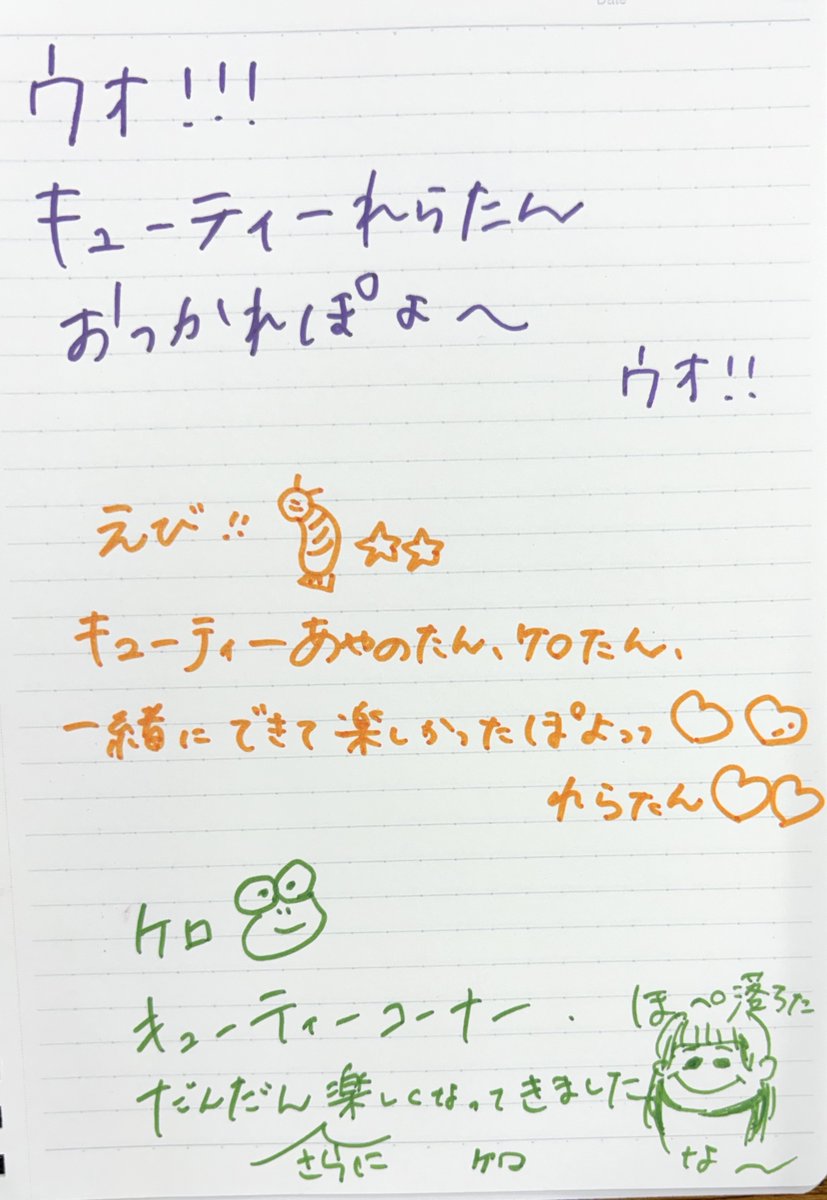 ウオ!!!
キューティーれらたん
おつかれぽよ〜
ウオ!!
えび!!
キューティーあやのたん、ケロたん、
一緒にできて楽しかったぽよっっ
れらたん
ケロ
キューティーコーナー.
だんだん楽しくなってきました
さらに
ケロ
ほっぺ落ろた
なー